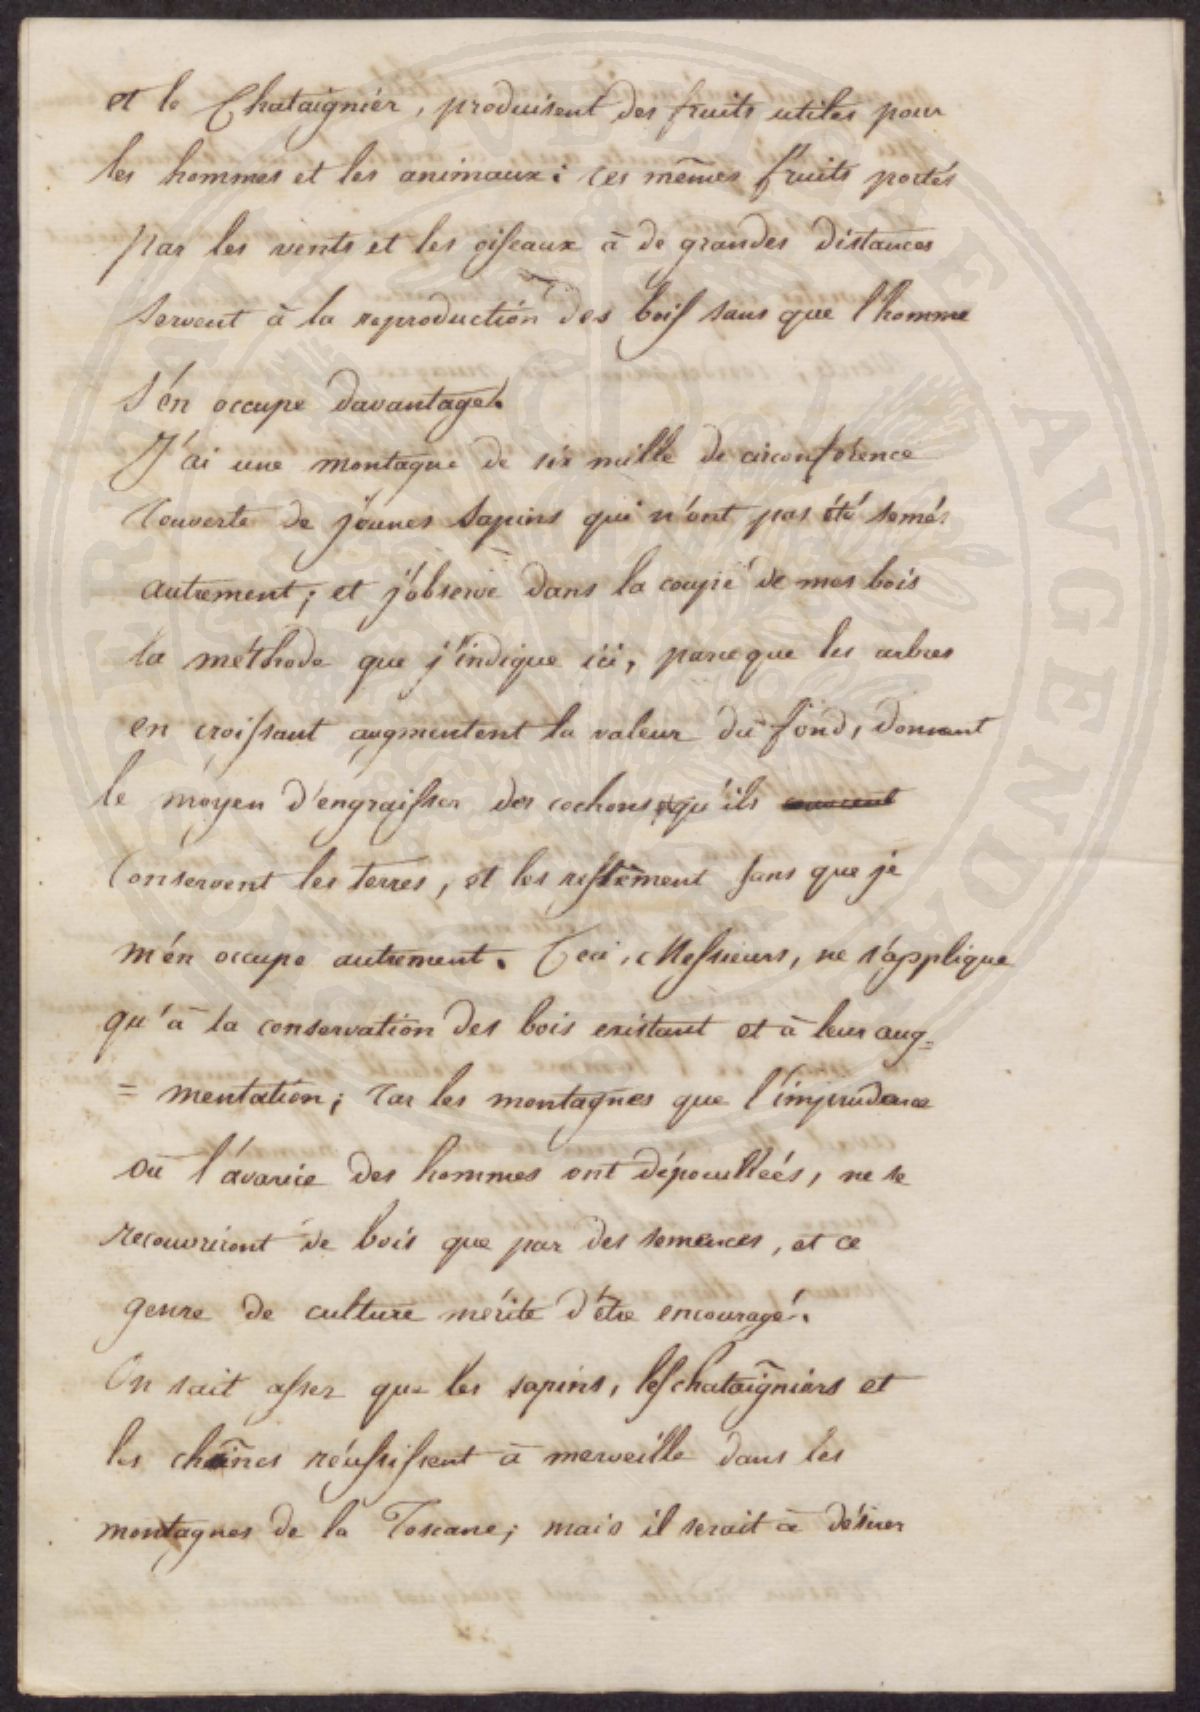 et le Chataignier, produisent des fruits utiles pour
les hommes et les animaux: ces mêmes fruits portés
par les vents et les oiseaux à de grandes distances
servent à la reproduction des bois sans que l'homme
s'en occupe davantage.
J'ai une montagne de six mille de circonférence
couverte de jeunes sapins qui n'ont pas été semés
autrement; et j'observe dans la coupe de mes bois
la méthode que j'indique ici, parceque les arbres
en croissant augmentent la valeur du fond, donnent
le moyen d'engraisser des cochons, qu'ils
conservent les terres, et les ressèment sans que je
m'en occupe autrement. Ceci, Messieurs, ne s'applique
qu'à la conservation des bois existant et à leur aug=
=mentation; car les montagnes que l'imprudence
ou l'avarice des hommes ont dépouillées, ne se
recouvriront de bois que par des semences, et ce
genre de culture mérite d'être encouragé.
On sait assez que les sapins, les chataigniers et
les chênes réussissent à merveille dans les
montagnes de la Toscane; mais il serait à désirer